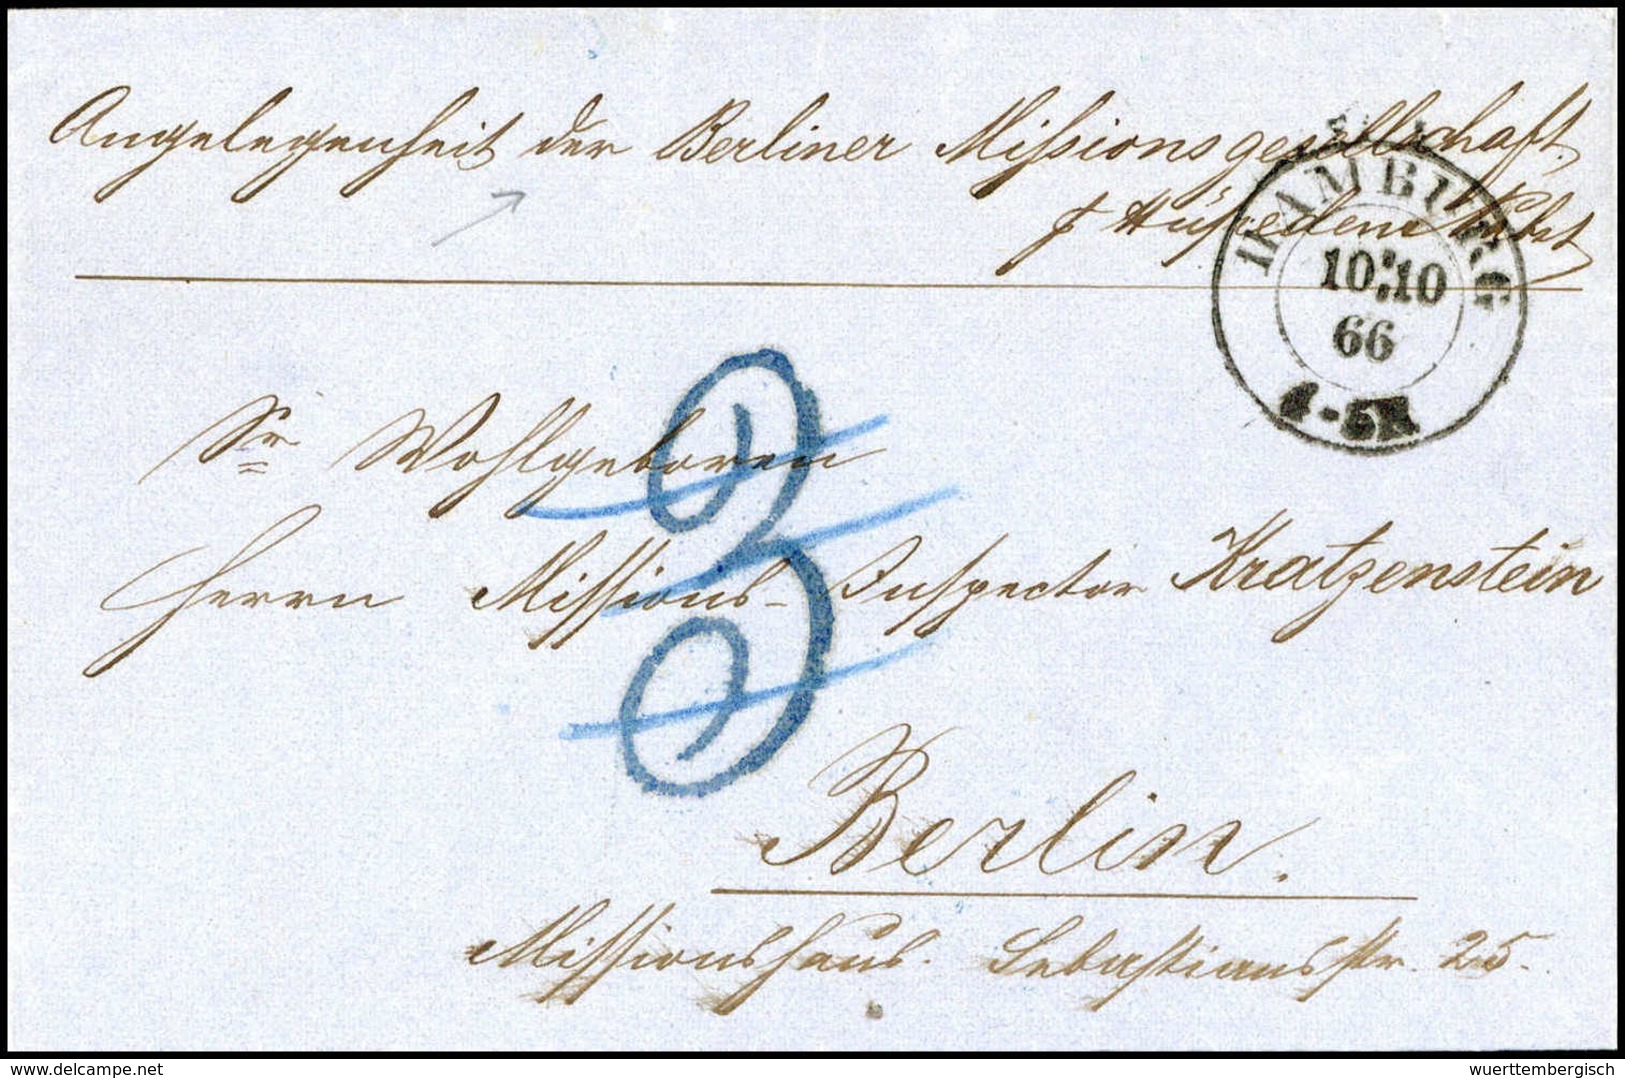 Angelegenheit der Berliner Missionsgesellschaft.
HAMBURG
10.10
66
4-5N
Sr Wohlgeboren
3
Herrn Missions-Inspector Kratzenstein
Berlin.
Missionshaus. Sebastiansstr. 25.
www.delcampe.net
wuerttembergisch